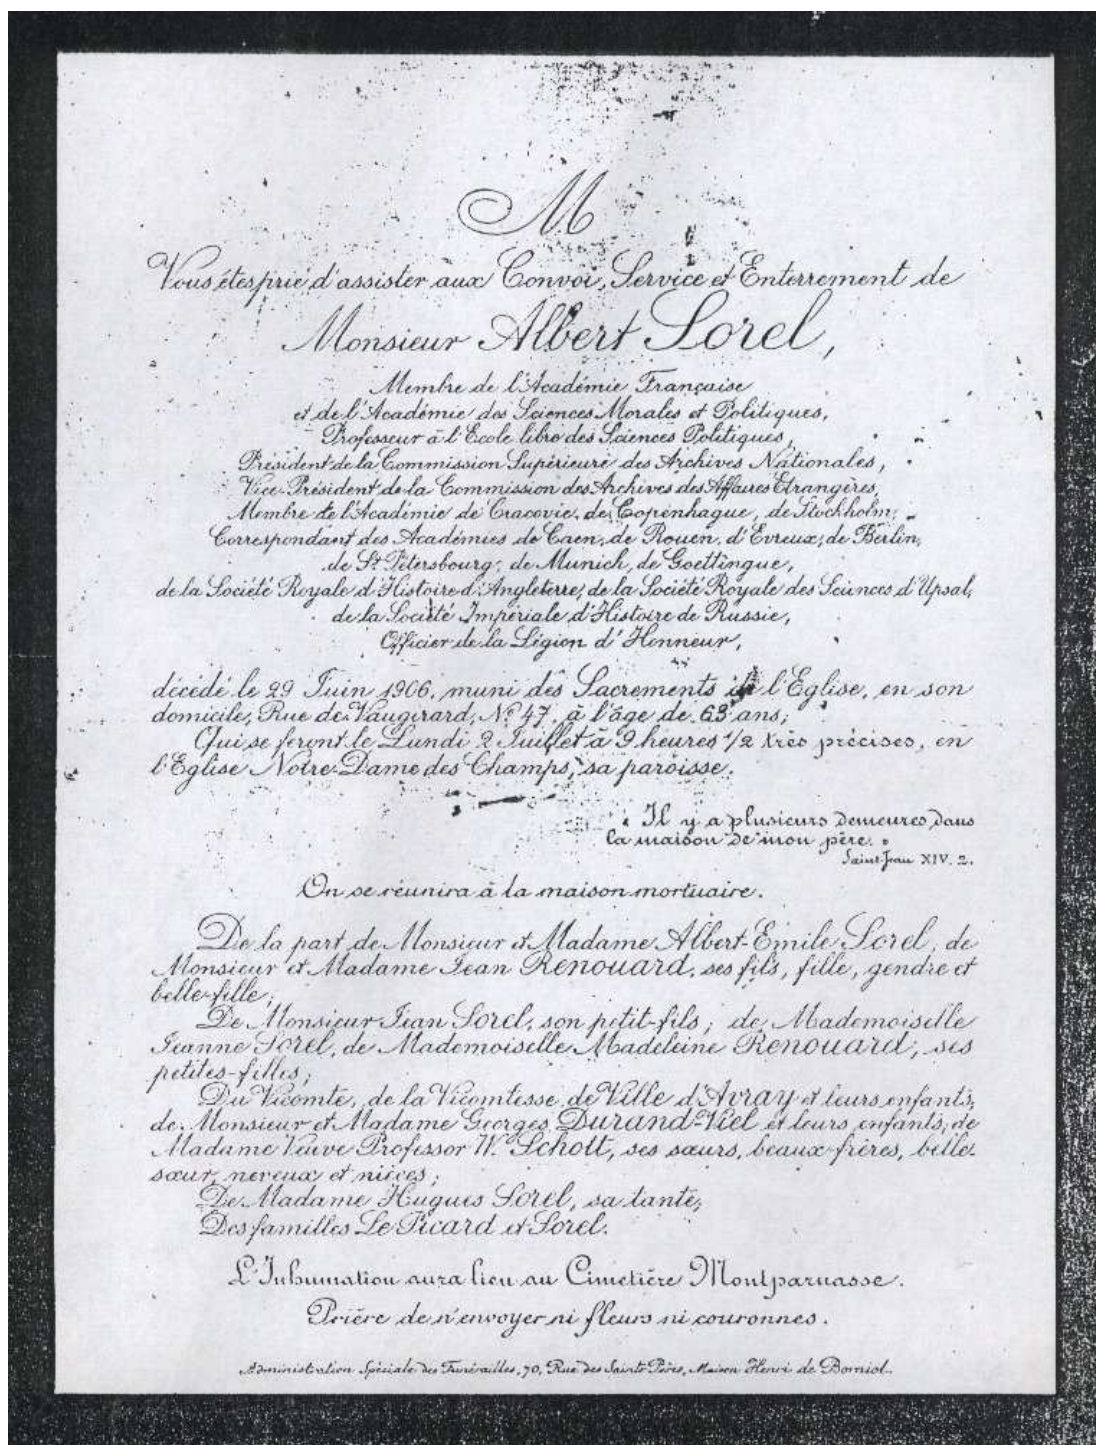 M
Vous êtes prié d'assister aux Convoi, Service et Enterrement de
Monsieur Albert Sorel,
Membre de l'Académie Française
et de l'Académie des Sciences Morales et Politiques,
Professeur à l'Ecole libre des Sciences Politiques,
Président de la Commission Supérieure des Archives Nationales,
Vice-Président de la Commission des Archives des Affaires Etrangères,
Membre de l'Académie de Cracovie, de Copenhague, de Stockholm,
Correspondant des Académies de Caen, de Rouen, d'Evreux, de Berlin,
de St Pétersbourg, de Munich, de Goettingue,
de la Société Royale d'Histoire d'Angleterre, de la Société Royale des Sciences d'Upsal,
de la Société Impériale d'Histoire de Russie,
Officier de la Légion d'Honneur,
décédé le 29 Juin 1906, muni des Sacrements de l'Eglise, en son
domicile, Rue de Vaugirard, No 47, à l'âge de 63 ans;
Qui se feront le Lundi 2 Juillet à 9 heures 1/2 très précises, en
l'Eglise Notre-Dame des Champs, sa paroisse.
« Il y a plusieurs demeures dans
la maison de mon père. »
Saint Jean XIV. 2.
On se réunira à la maison mortuaire.
De la part de Monsieur et Madame Albert-Emile Sorel, de
Monsieur et Madame Jean Renouard, ses fils, fille, gendre et
belle-fille;
De Monsieur Jean Sorel, son petit-fils; de Mademoiselle
Jeanne Sorel, de Mademoiselle Madeleine Renouard, ses
petites-filles;
Du Vicomte, de la Vicomtesse de Ville d'Avray et leurs enfants,
de Monsieur et Madame Georges Durand-Viel et leurs enfants, de
Madame Veuve Professor W. Schott, ses sœurs, beaux-frères, belle-
sœur, neveux et nièces;
De Madame Hugues Sorel, sa tante,
Des familles Le Picard et Sorel.
L'Inhumation aura lieu au Cimetière Montparnasse.
Prière de n'envoyer ni fleurs ni couronnes.
Administration Spéciale des Funérailles, 70, Rue des Saints-Pères, Maison Henri de Borniol.